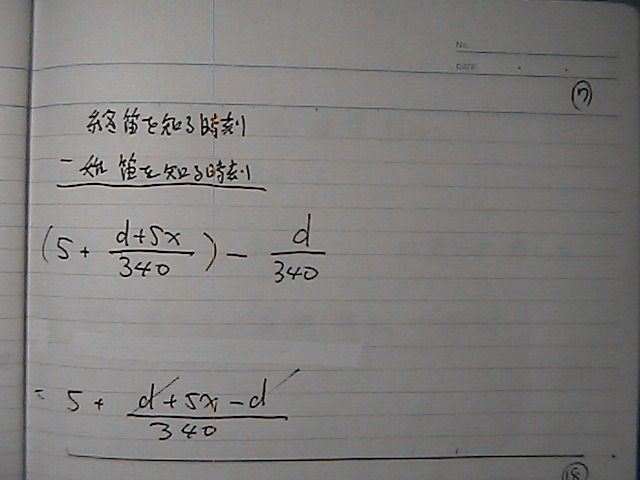 No.
DATE
⑰
終笛を知る時刻
- 始笛を知る時刻
(5 + (d+5x)/340) - d/340
= 5 + (d+5x-d)/340
⑱